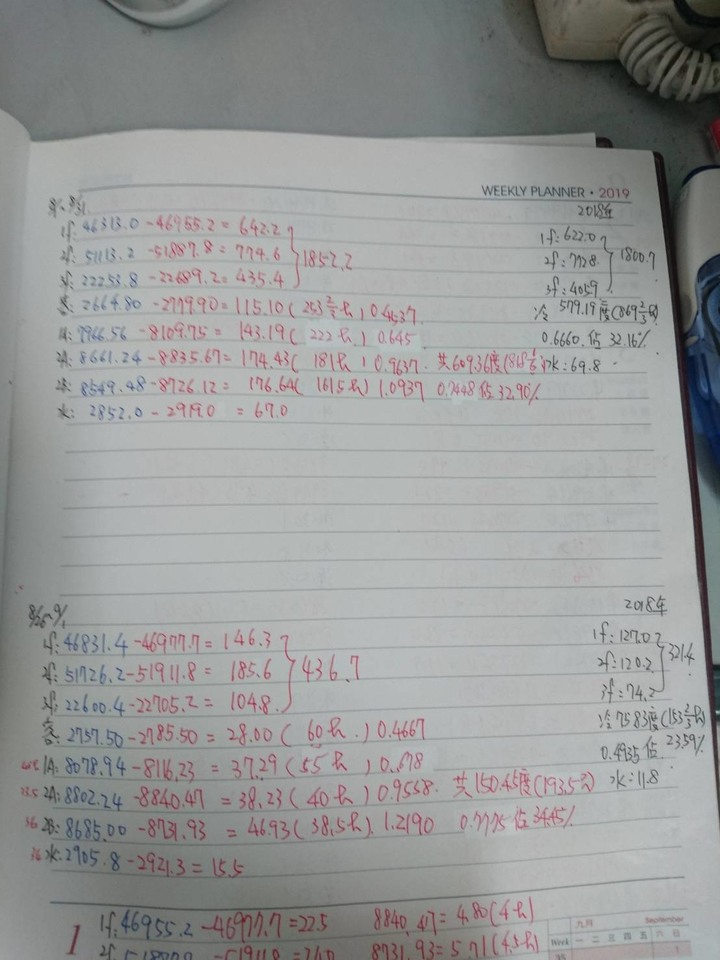 WEEKLY PLANNER · 2019
8/1~8/31
2018年
1f: 46313.0 -46955.2 = 642.2
2f: 51113.2 -51887.8 = 774.6
1852.2
3f: 22253.8 -22689.2 = 435.4
1f: 622.0
2f: 772.8
1800.7
3f: 405.9
客: 2664.80 -2779.90 = 115.10 ( 253 2/3 h ) 0.4537
冷 579.19度(869 2/3 h)
1A: 7966.56 -8109.75 = 143.19 ( 222 h ) 0.645
0.6660. 佔 32.16%
2A: 8661.24 -8835.67 = 174.43 ( 181h ) 0.9637 共609.36度
水: 69.8
2B: 8549.48 -8726.12 = 176.64 ( 161.5h ) 1.0937 0.7448 佔 32.90%
水: 2852.0 - 2919.0 = 67.0
8/26~9/1
2018年
1f: 46831.4 -46977.7 = 146.3
2f: 51726.2 -51911.8 = 185.6
436.7
3f: 22600.4 -22705.2 = 104.8
1f: 127.0
2f: 120.2
321.4
3f: 74.2
客: 2757.50 -2785.50 = 28.00 ( 60h ) 0.4667
冷 75.83度(153 2/3 h)
1A: 8078.94 -8116.23 = 37.29 ( 55h ) 0.678
0.4935 佔 23.59%
2A: 8802.24 -8840.47 = 38.23 ( 40h ) 0.9558. 共150.45度(193.5h)
水: 11.8
2B: 8685.00 -8731.93 = 46.93 ( 38.5h ) 1.2190 0.7775 佔 34.45%
水: 2905.8 -2921.3 = 15.5
1
1f. 46955.2 -46977.7 = 22.5 8840.47 = 4.80 (4h)
8731.93 = 5.71 (4.5h)
九月 September
Week 一 二 三 四 五 六 日
35 1